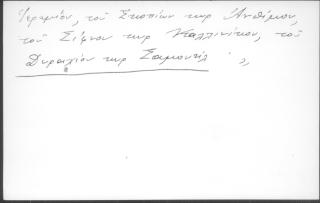 Ἱερεμίου, τοῦ Σκοπίων κυρ Ἀνθίμου,
τοῦ Σίφνου κυρ Καλλινίκου, τοῦ
Δυραχίου κυρ Σαμουήλ ",